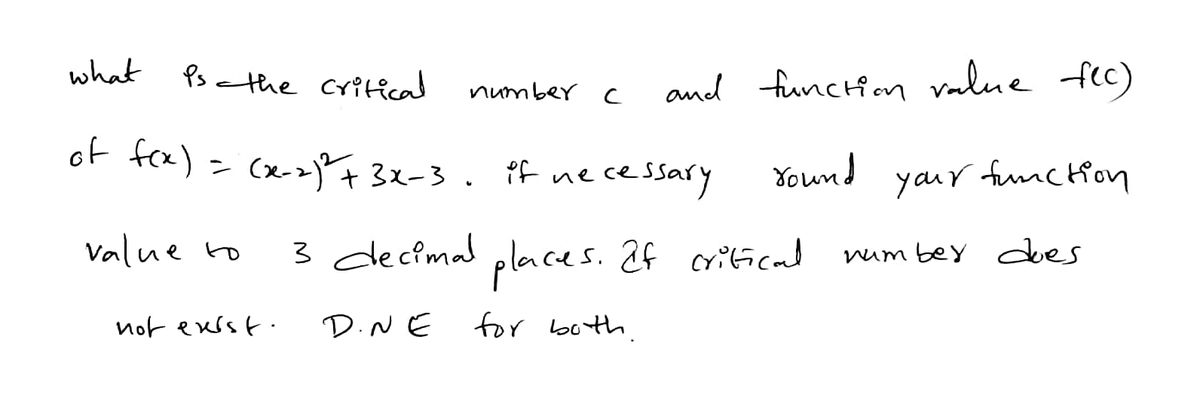 what is the critical number c and function value f(c)
of f(x) = (x-2)²+ 3x-3. if necessary round your function
value to 3 decimal places. If critical number does
not exist. D.N E for both.